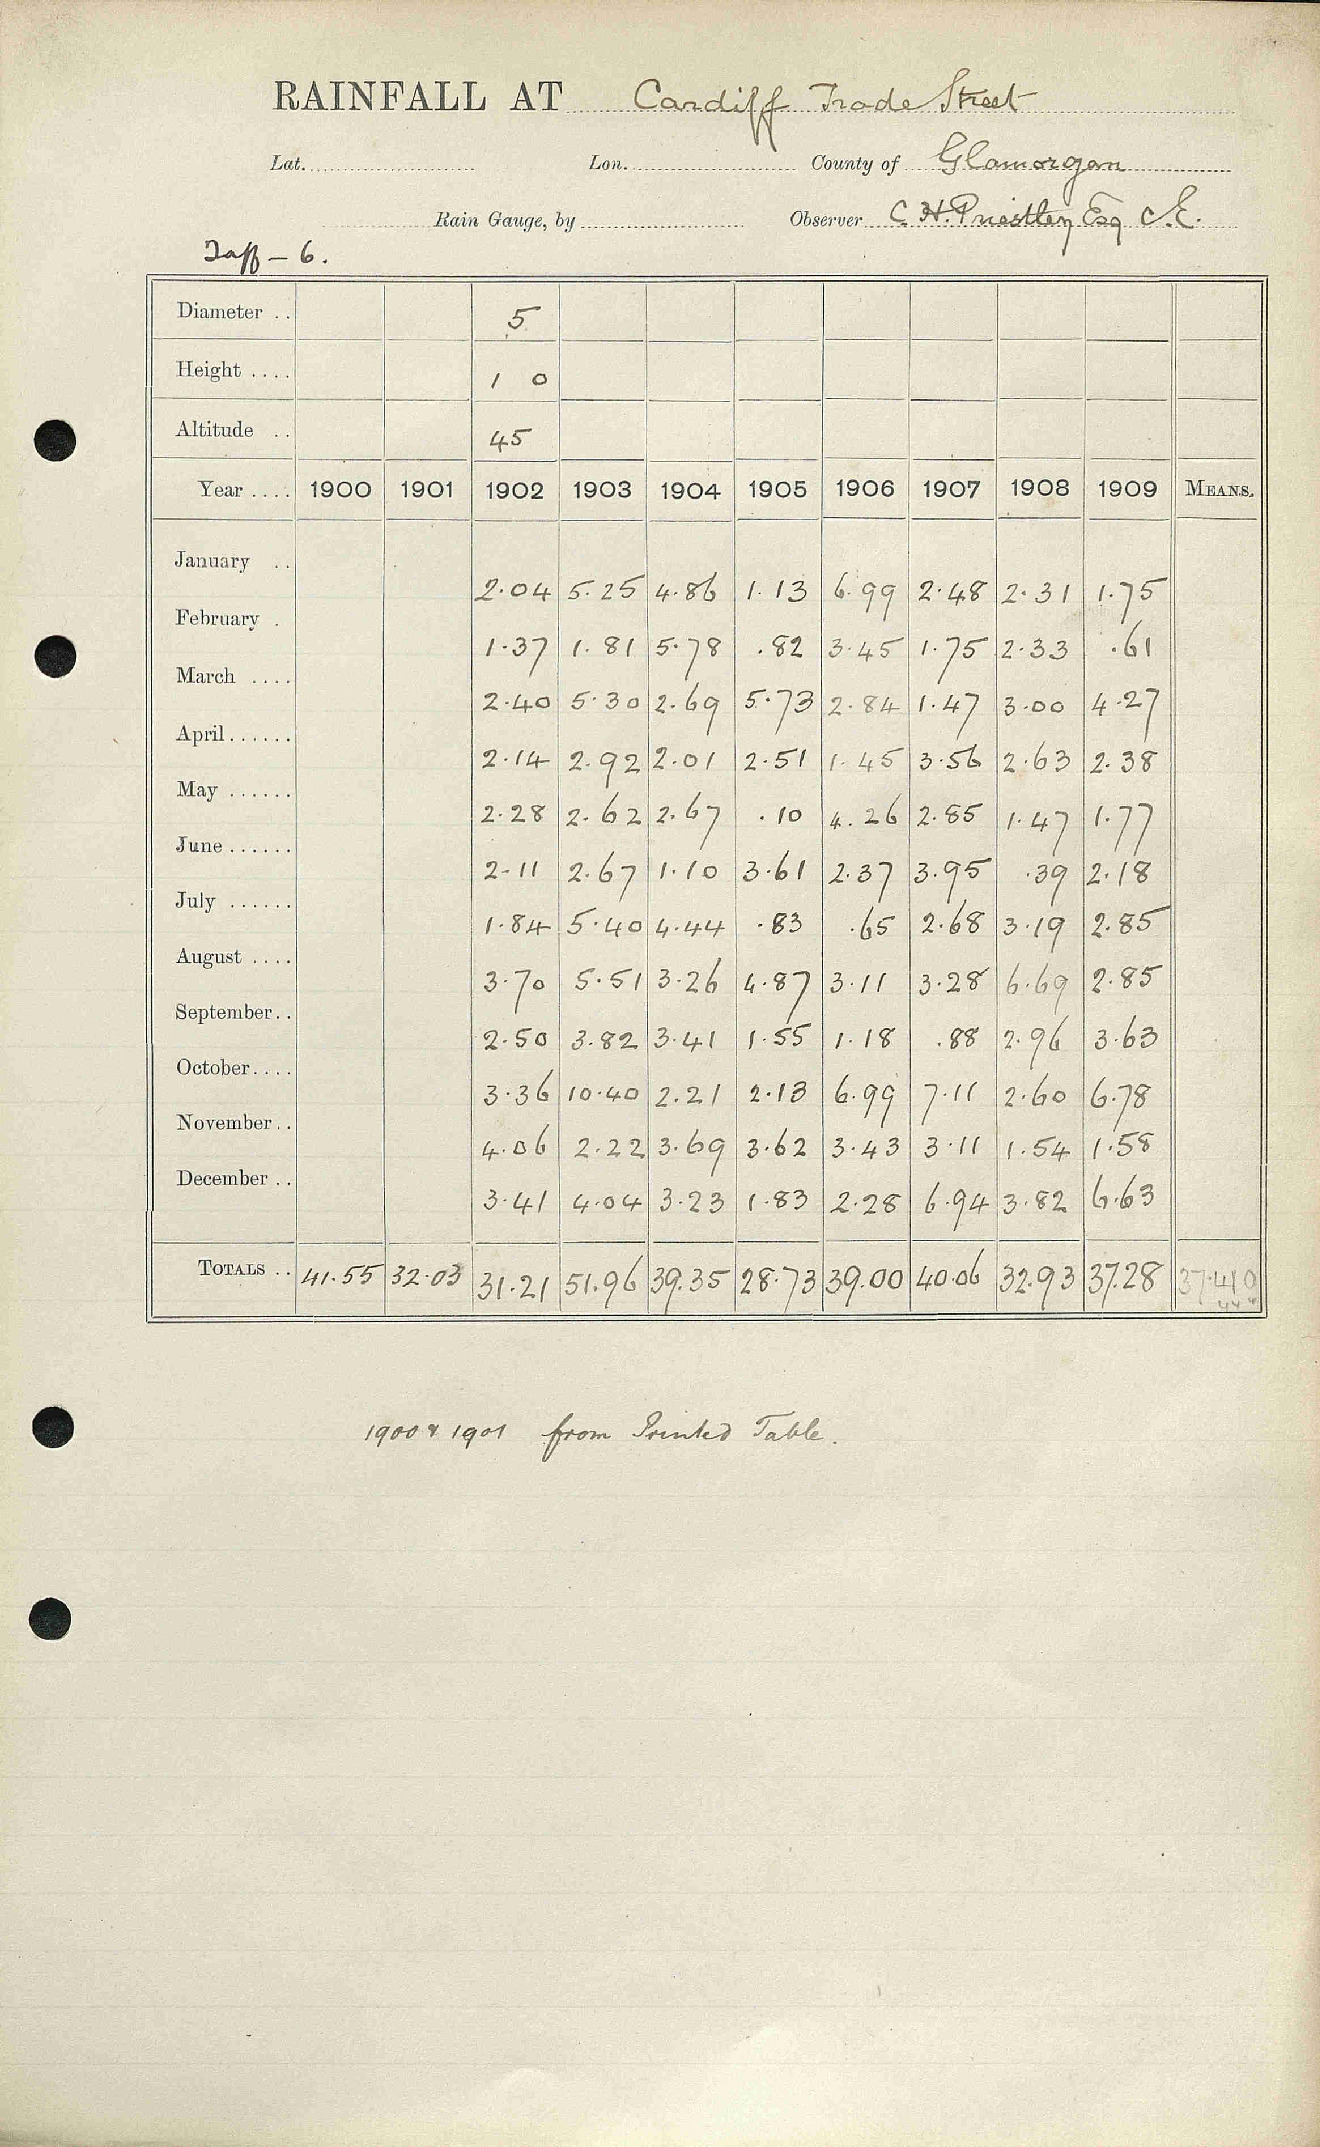 RAINFALL AT Cardiff Trade Street
Lat. Lon. County of Glamorgan
Rain Gauge, by Observer C. H. Priestley Esq C.E.
Taff - 6.
Diameter .. 5
Height .... 1 0
Altitude .. 45
Year .... 1900 1901 1902 1903 1904 1905 1906 1907 1908 1909 MEANS.
January .. 2.04 5.25 4.86 1.13 6.99 2.48 2.31 1.75
February . 1.37 1.81 5.78 .82 3.45 1.75 2.33 .61
March .... 2.40 5.30 2.69 5.73 2.84 1.47 3.00 4.27
April...... 2.14 2.92 2.01 2.51 1.45 3.56 2.63 2.38
May ...... 2.28 2.62 2.67 .10 4.26 2.85 1.47 1.77
June...... 2.11 2.67 1.10 3.61 2.37 3.95 .39 2.18
July ...... 1.84 5.40 4.44 .83 .65 2.68 3.19 2.85
August .... 3.70 5.51 3.26 4.87 3.11 3.28 6.69 2.85
September.. 2.50 3.82 3.41 1.55 1.18 .88 2.96 3.63
October.... 3.36 10.40 2.21 2.13 6.99 7.11 2.60 6.78
November.. 4.06 2.22 3.69 3.62 3.43 3.11 1.54 1.58
December .. 3.41 4.04 3.23 1.83 2.28 6.94 3.82 6.63
TOTALS .. 41.55 32.03 31.21 51.96 39.35 28.73 39.00 40.06 32.93 37.28 37.410
1900 & 1901 from Printed Table.